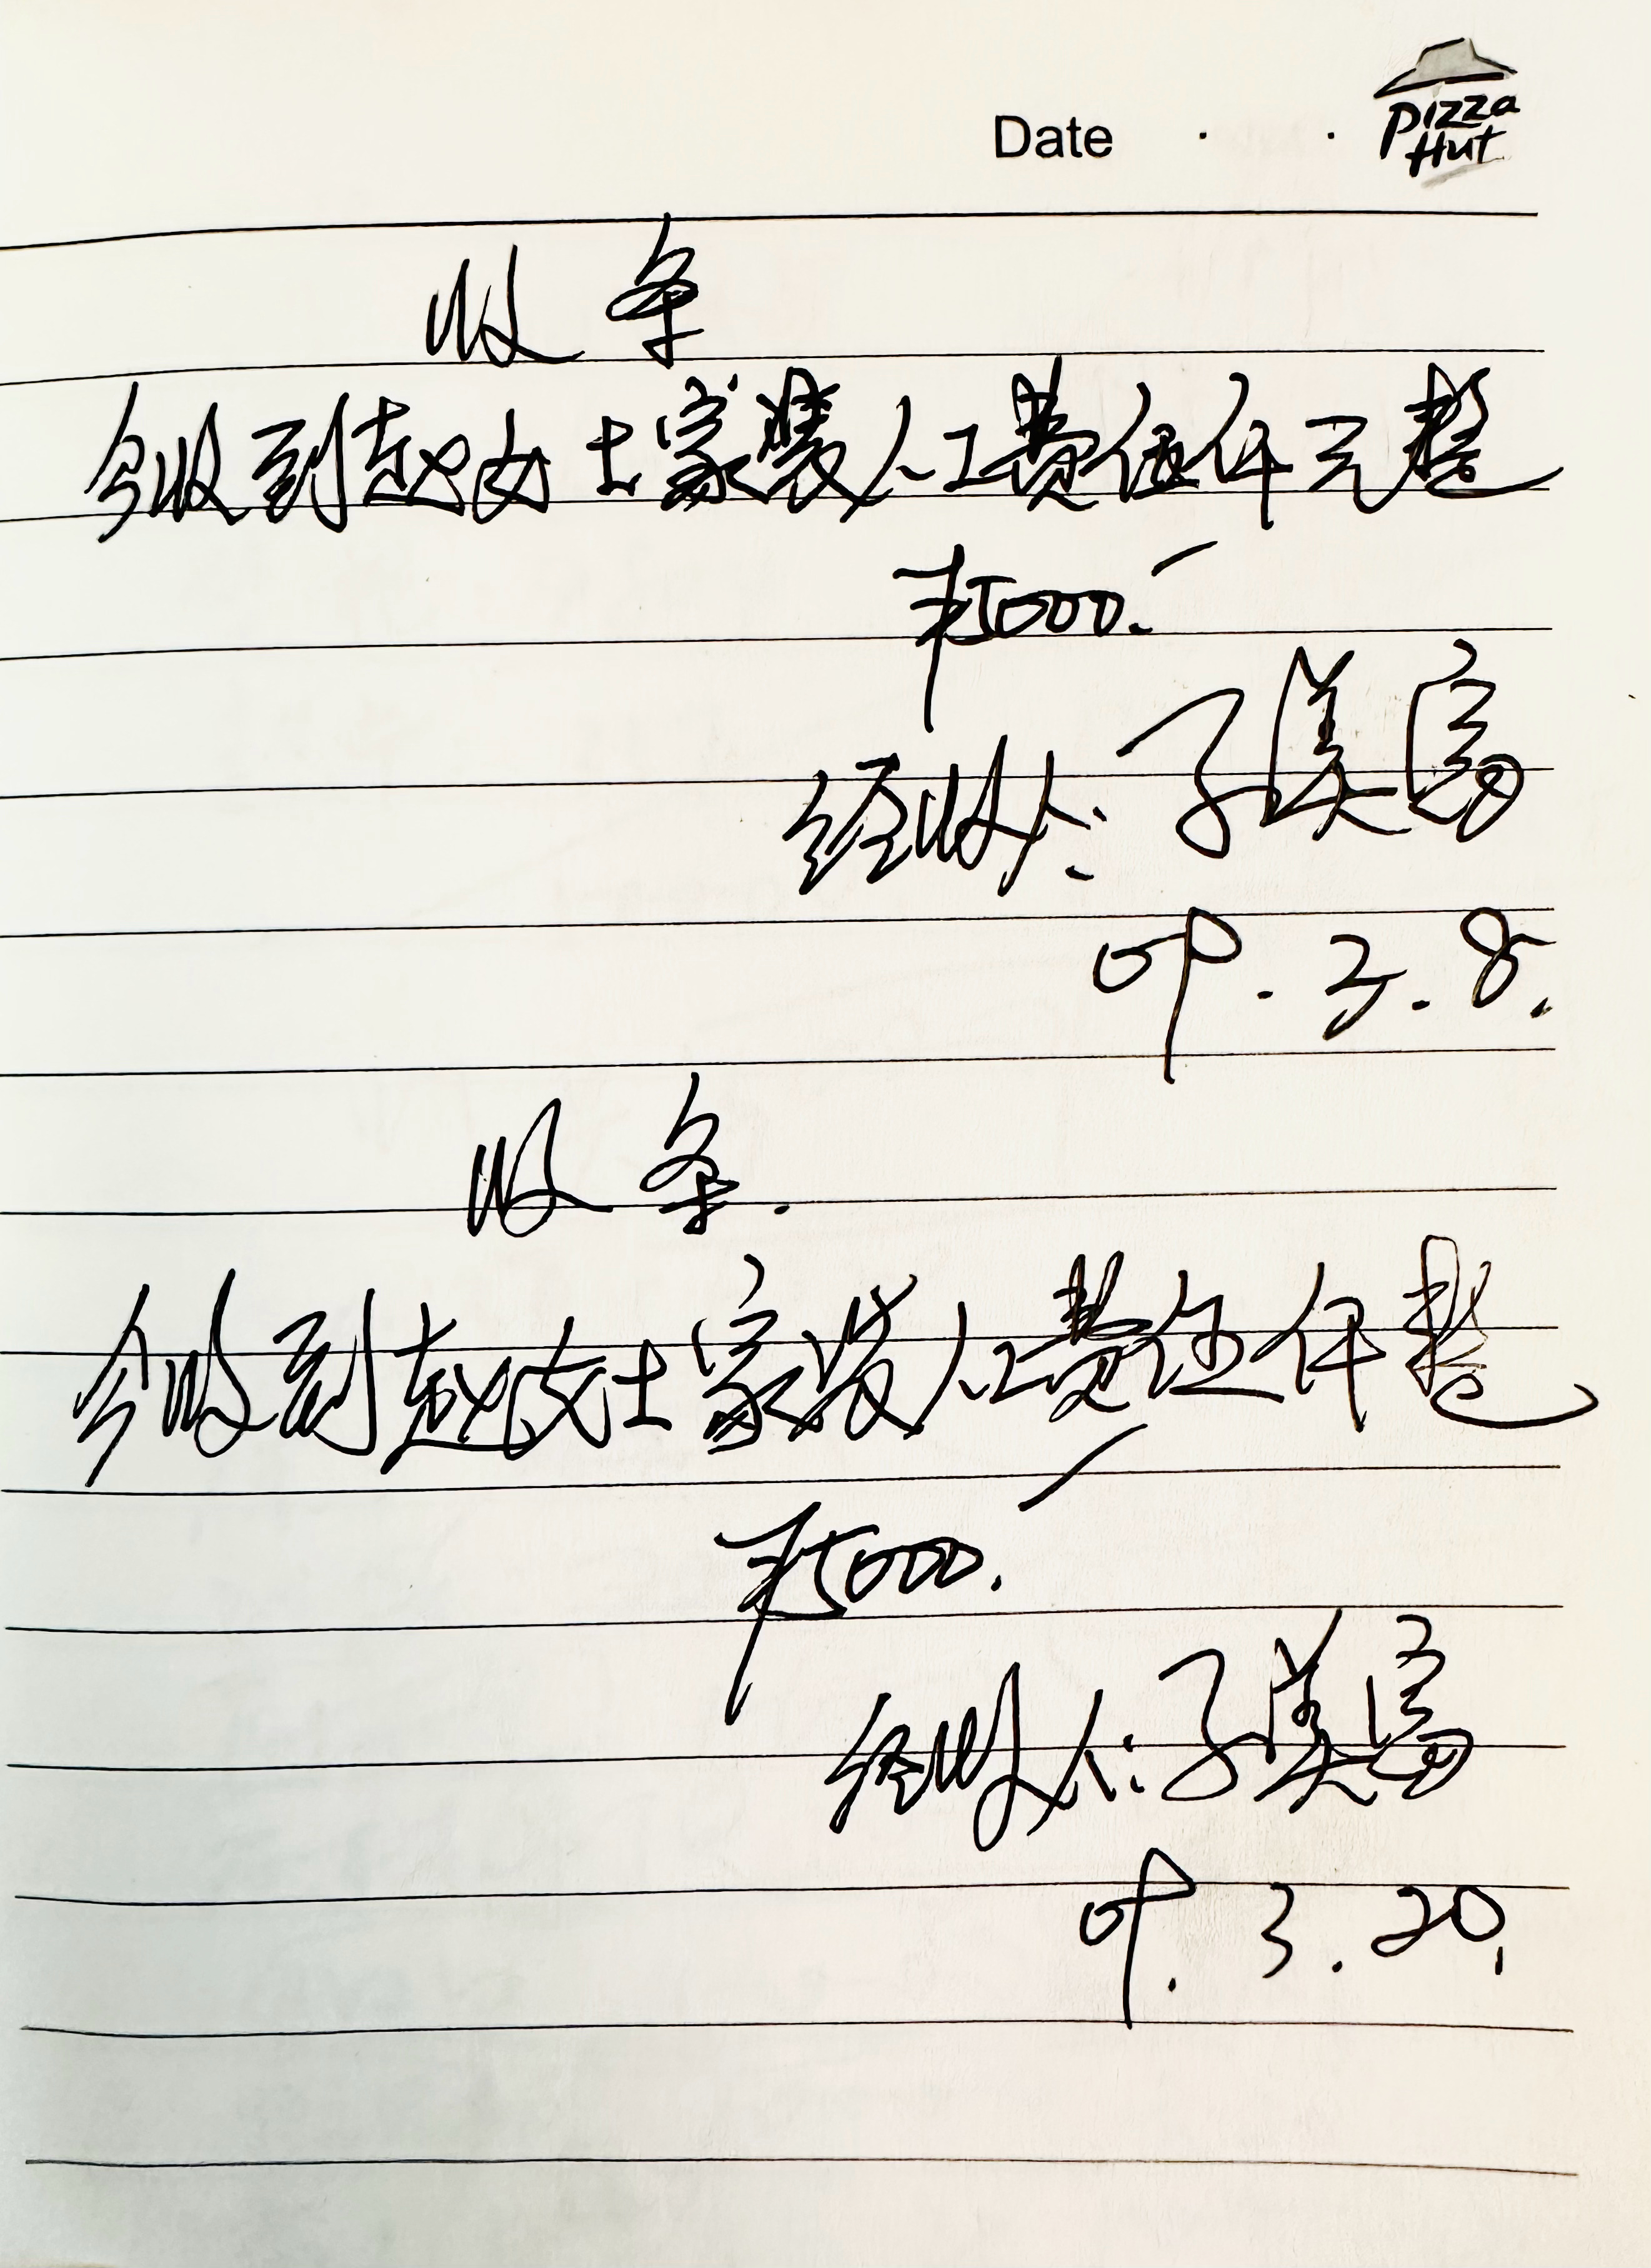 Date . .
Pizza Hut
收条
今收到赵女士家装人工费伍仟元整
¥5000.
经收人:
09.3.8.
收条.
今收到赵女士家装人工费伍仟整
¥5000.
经收人:
09.3.20.